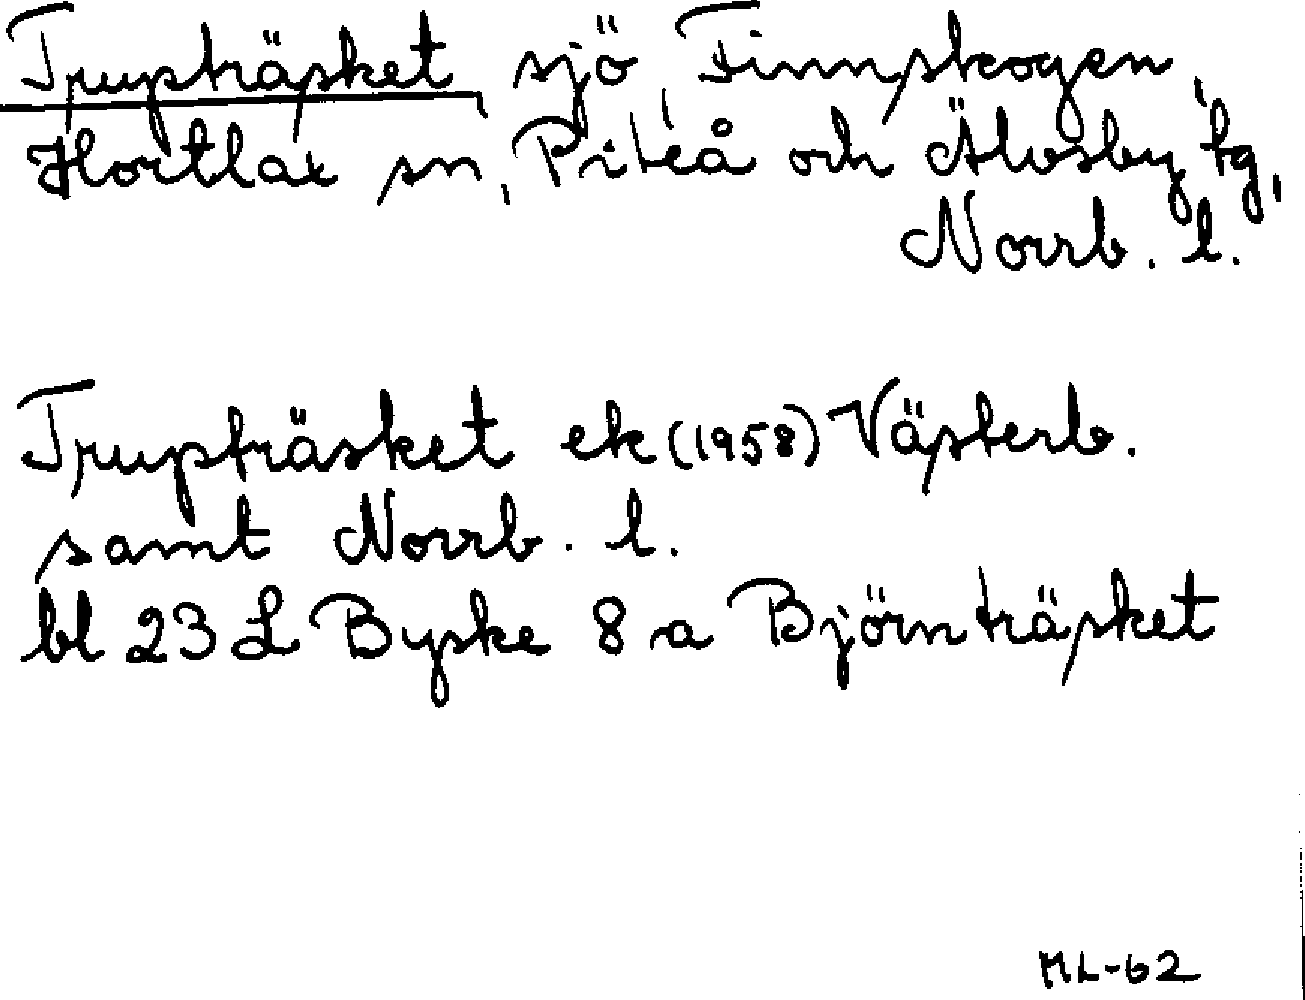 Trupträsket, sjö, Finnskogen,
Hortlax sn, Piteå och Älvsby tg,
Norrb. l.
Trupträsket ek (1958) Västerb.
samt Norrb. l.
bl 23 L Byske 8 a Björnträsket
ML-62